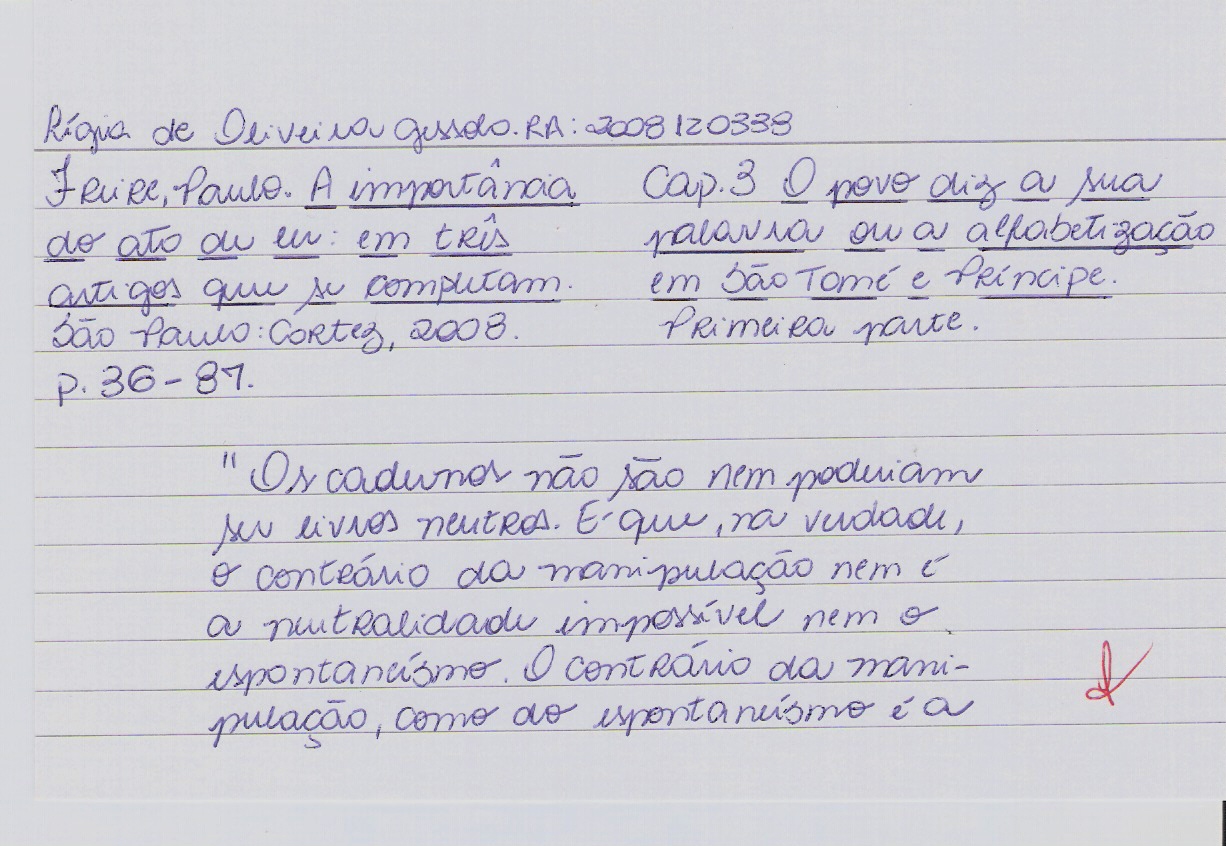 Rígia de Oliveira Gessolo. RA: 2008120339
Freire, Paulo. A importância
do ato de ler: em três
artigos que se completam.
São Paulo: Cortez, 2008.
p. 36-87.
Cap. 3 O povo diz a sua
palavra ou a alfabetização
em São Tomé e Príncipe.
Primeira parte.
"Os cadernos não são nem poderiam
ser livros neutros. É que, na verdade,
o contrário da manipulação nem é
a neutralidade impossível nem o
espontaneísmo. O contrário da mani-
pulação, como do espontaneísmo é a